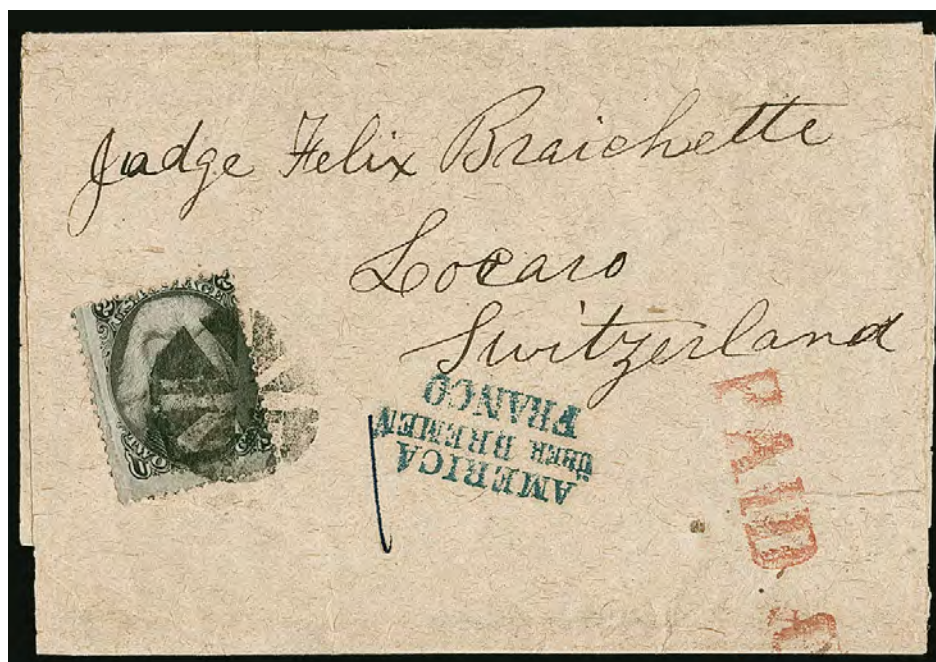 Judge Felix Braichette
Locaro
Switzerland
U.S. POSTAGE
AMERICA
ÜBER BREMEN
FRANCO
PAID A